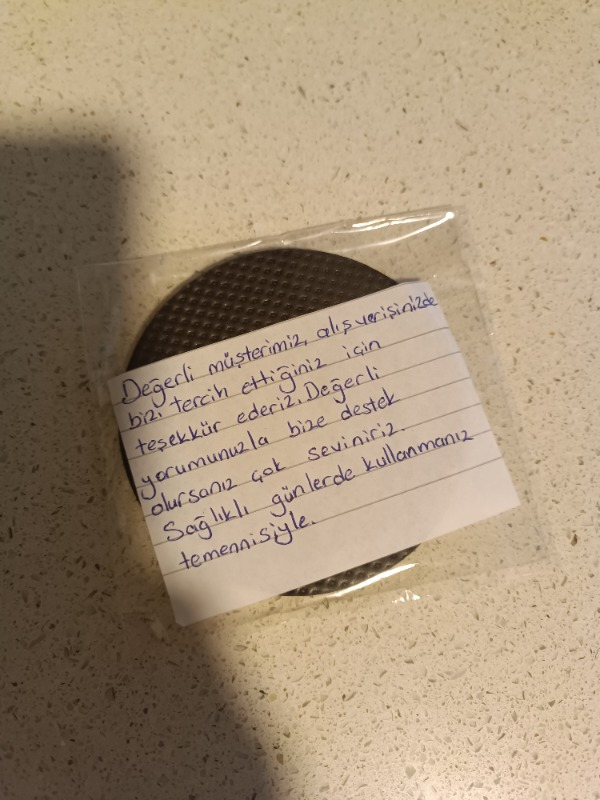 Değerli müşterimiz, alışverişinizde
bizi tercih ettiğiniz için
teşekkür ederiz. Değerli
yorumunuzla bize destek
olursanız çok seviniriz.
Sağlıklı günlerde kullanmanız
temennisiyle.